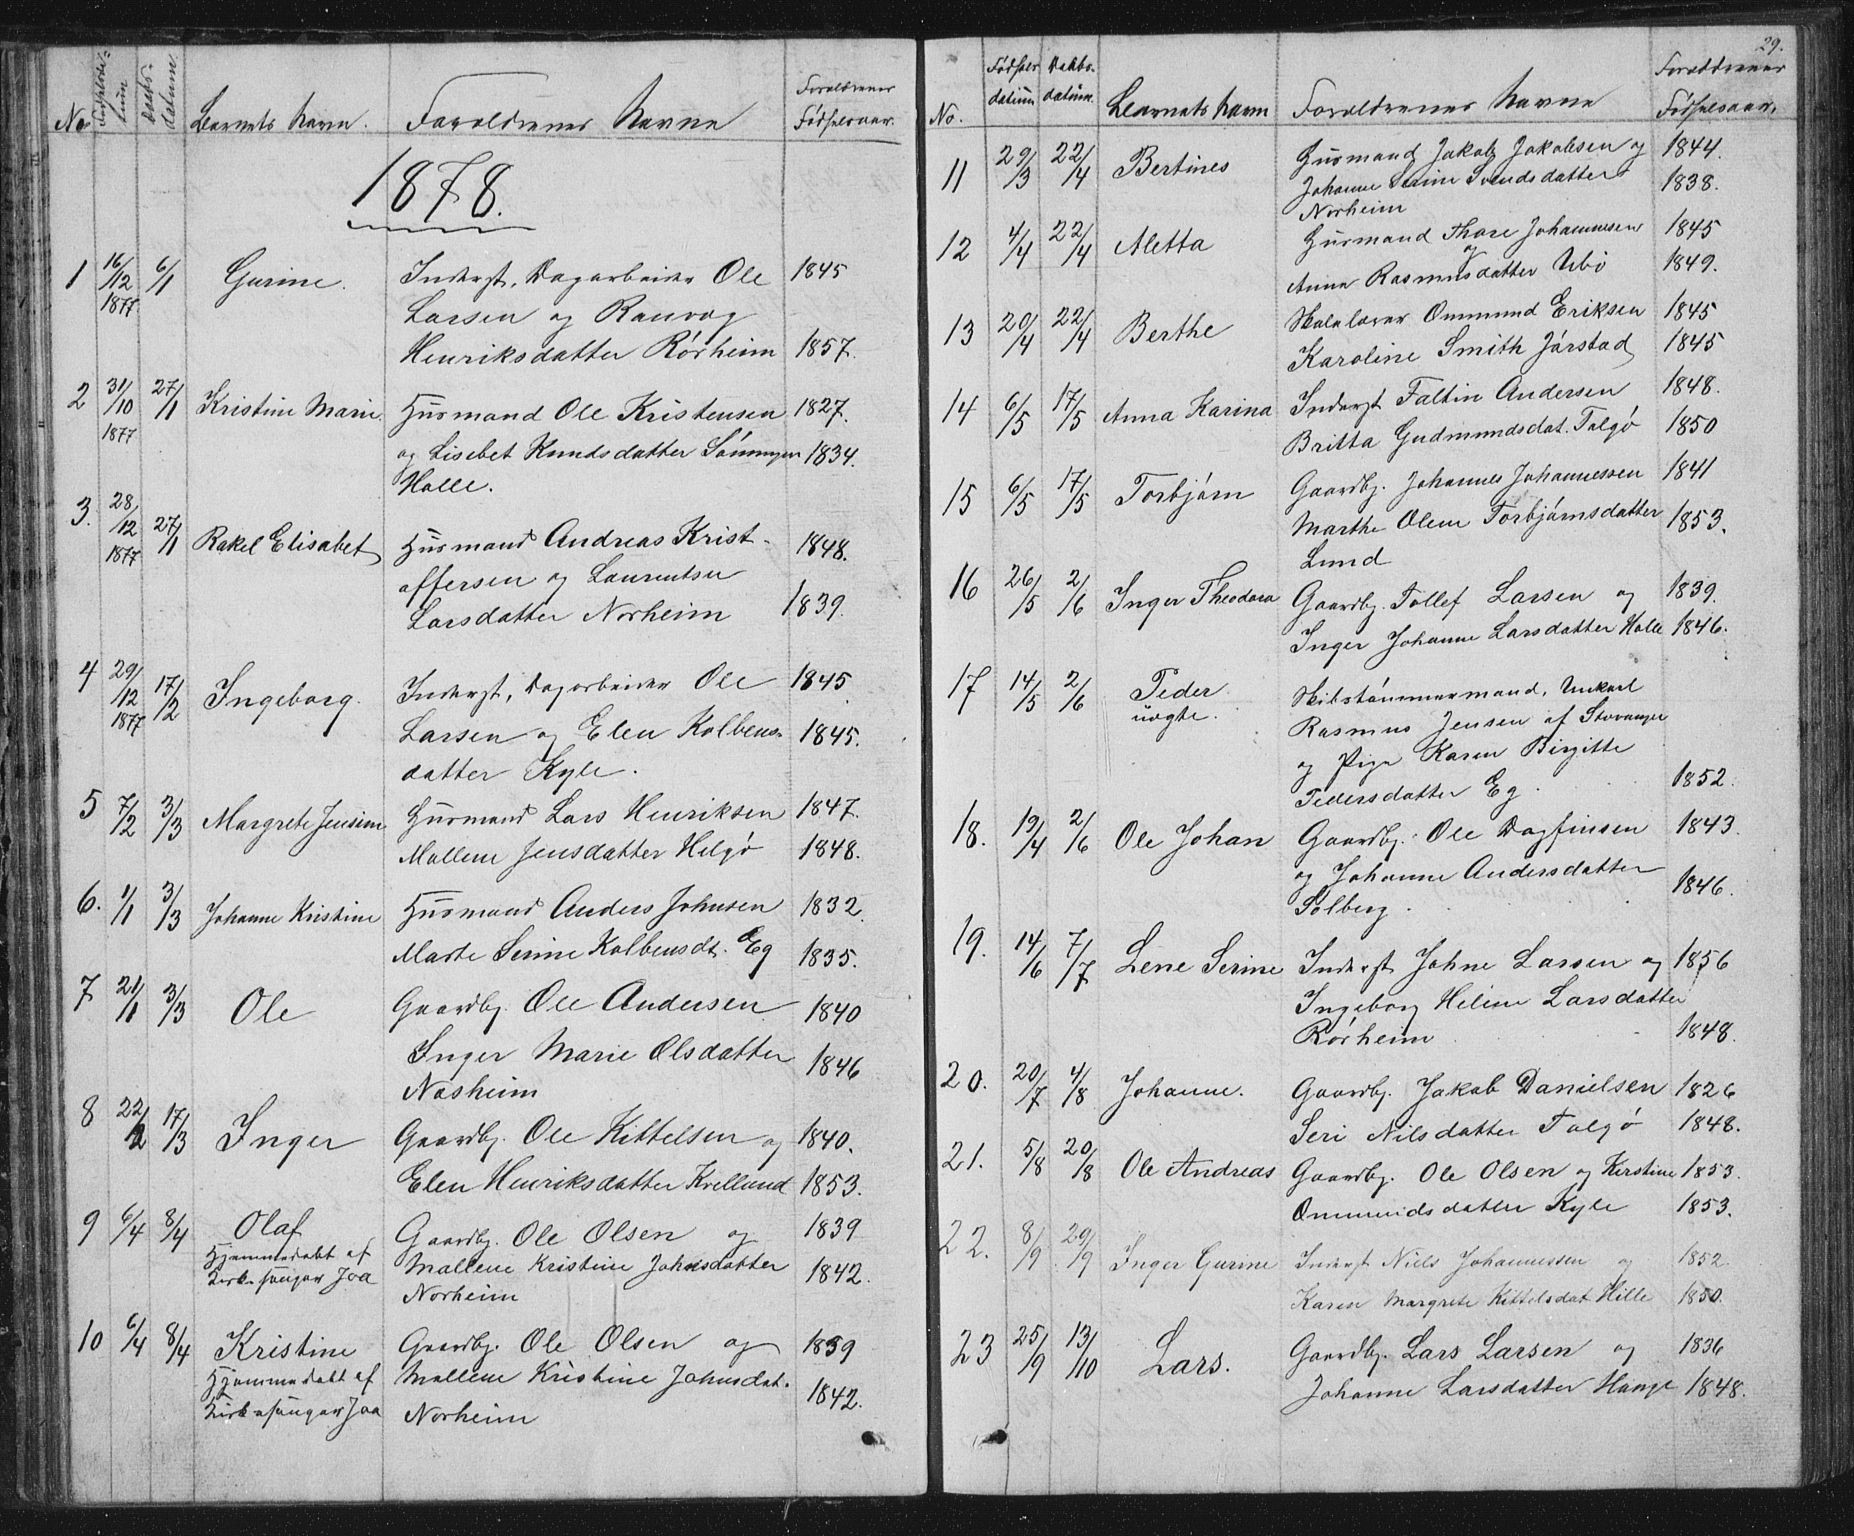 No. Fødsels- datum Daabs- datum Barnets Navn. Forældrenes Navne Forældrenes Fødselsaar.
1878.
1 16/12 1877 6/1 Gurine. Inderst, Dagarbeider Ole 1845
Larsen og Ranvog
Henriksdatter Rørheim 1857.
2 31/10 1877 27/1 Kristine Marie Husmand Ole Kristensen 1827.
og Lisebet Knudsdatter 1834.
Halle.
3. 28/12 1877 27/1 Rakel Elisabet Husmand Andreas Krist- 1848.
offersen og Laurentse
Larsdatter Norheim 1839.
4 29/12 1877 17/2 Ingeborg. Inderst, Dagarbeider Ole 1845
Larsen og Elen Kolbens- 1845.
datter Kyle.
5 7/2 3/3 Margrete Jensine Husmand Lars Henriksen 1847.
Mallene Jensdatter Helgø 1848.
6. 1/1 3/3 Johanne Kristine Husmand Anders Johnsen 1832.
Marte Serine Kolbensdt. Eg 1835.
7 21/1 3/3 Ole Gaardbg. Ole Andersen 1840
Inger Marie Olsdatter 1846
Nasheim
8 22/2 17/3 Inger Gaardbg. Ole Kittelsen og 1840.
Elen Henriksdatter Kvellund 1853.
9 6/4 8/4 Olaf Gaardbg. Ole Olsen og 1839
Hjemmedøbt af Mallene Kristine Johnsdatter 1842.
Kirkesanger Joa Norheim
10 6/4 8/4 Kristine Gaardbg. Ole Olsen og 1839
Hjemmedøbt af Mallene Kristine Johnsdat. 1842.
Kirkesanger Joa Norheim
29.
No. Fødsels datum Daabs- datum. Barnets Navn Forældrenes Navne Forældrenes Fødselsaar.
11 29/3 22/4 Bertines Husmand Jakob Jakobsen og 1844.
Johanne Serine Svendsdatter 1838.
Norheim
12 4/4 22/4 Aletta Husmand Thore Johannesen 1845
og
Anna Rasmusdatter Usbø 1849.
13 20/4 22/4 Berthe Skolelærer Ommund Eriksen 1845
Karoline Smith Jørstad 1845
14 6/5 17/5 Anna Karina Inderst Faltin Andersen 1848.
Britta Gudmundsdat. Talgø 1850
15 6/5 17/5 Torbjørn Gaardbg. Johannes Johannessen 1841
Marthe Olene Torbjørnsdatter 1853.
Lund
16 26/5 2/6 Inger Theodora Gaardbg. Tollef Larsen og 1839.
Inger Johanne Larsdatter Halle 1846.
17 14/5 2/6 Peder Skibstømmermand, Unkarl
uægte. Rasmus Jensen af Stavanger
og Pige Karen Birgitte
Pedersdatter Eg. 1852.
18. 19/4 2/6 Ole Johan Gaardbg. Ole Dagfinsen 1843.
og Johanne Andersdatter 1846.
Solberg.
19. 14/6 7/7 Lene Serine Inderst Johne Larsen og 1856
Ingeborg Heline Larsdatter
Rørheim 1848.
20. 20/7 4/8 Johanne. Gaardbg. Jakob Danielsen 1826
Seri Nilsdatter Talgø 1848.
21. 5/8 20/8 Ole Andreas Gaardbg. Ole Olsen og Kerstine 1853.
Ommundsdatter Kyle 1853.
22. 8/9 29/9 Inger Gurine Inderst Niels Johannessen og 1852.
Karen Margrete Kittelsdat Hille 1850.
23 25/9 13/10 Lars. Gaardbg. Lars Larsen og 1836
Johanne Larsdatter Hauge 1848.